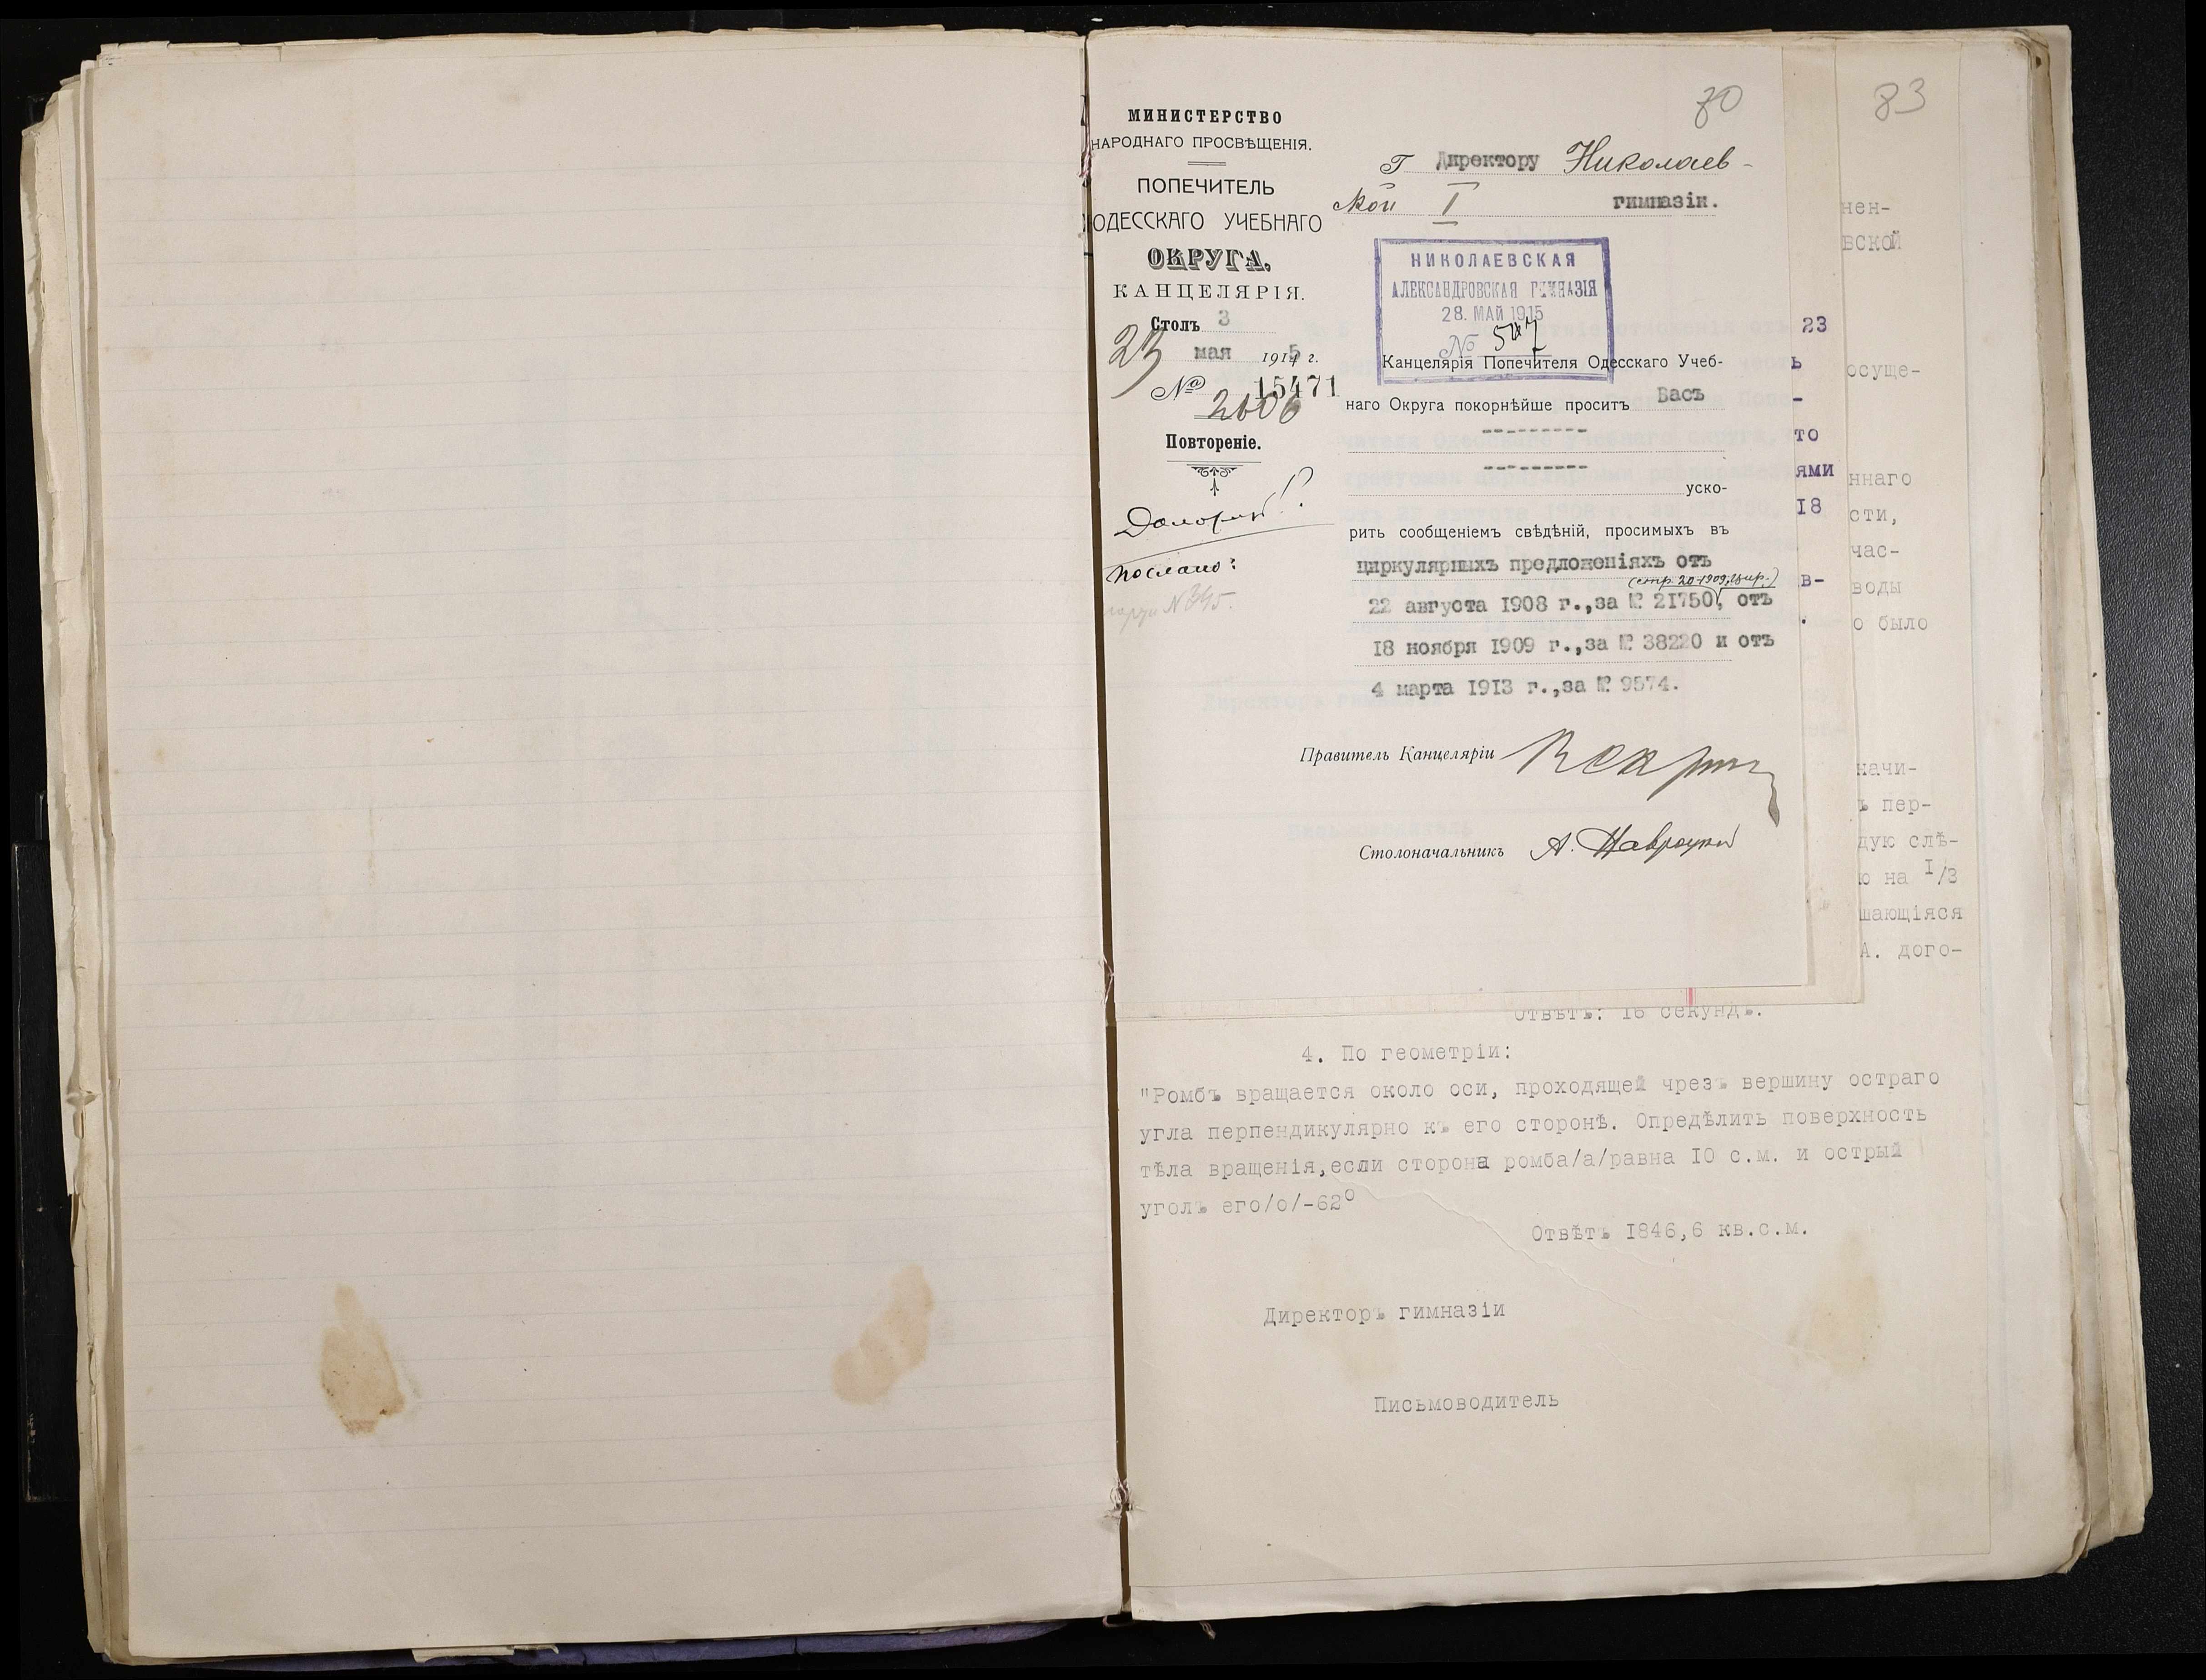 80
83
МИНИСТЕРСТВО
НАРОДНАГО ПРОСВѢЩЕНІЯ.
ПОПЕЧИТЕЛЬ
ОДЕССКАГО УЧЕБНАГО
ОКРУГА.
КАНЦЕЛЯРІЯ.
Столъ 3
23 мая 1915 г.
№ 15471
2606
Повтореніе.
послано:
№ 345.
Г Директору Николаев-
ской I гимназіи.
НИКОЛАЕВСКАЯ
АЛЕКСАНДРОВСКАЯ ГИМНАЗІЯ
28. МАЙ 1915
№ 547
Канцелярія Попечителя Одесскаго Учеб-
наго Округа покорнѣйше проситъ Васъ
---------
---------
уско-
рить сообщеніемъ свѣдѣній, просимыхъ въ
циркулярныхъ предложеніяхъ отъ
(стр. 20-1909, цир.)
22 августа 1908 г.,за № 21750, отъ
18 ноября 1909 г.,за № 38220 и отъ
4 марта 1913 г.,за № 9574.
Правитель Канцеляріи
Столоначальникъ А. Навроцкій
23
ь
-
то
ями
18
в-
.
нен-
вской
осуще-
ннаго
сти,
час-
воды
о было
начи-
ъ пер-
дую слѣ-
ю на 1/3
шающіяся
А. дого-
Отвѣтъ: 16 секундъ.
4. По геометріи:
"Ромбъ вращается около оси, проходящей чрезъ вершину остраго
угла перпендикулярно къ его сторонѣ. Опредѣлить поверхность
тѣла вращенія,если сторона ромба/а/равна 10 с.м. и острый
уголъ его/о/-62°
Отвѣтъ 1846,6 кв.с.м.
Директоръ гимназіи
Письмоводитель